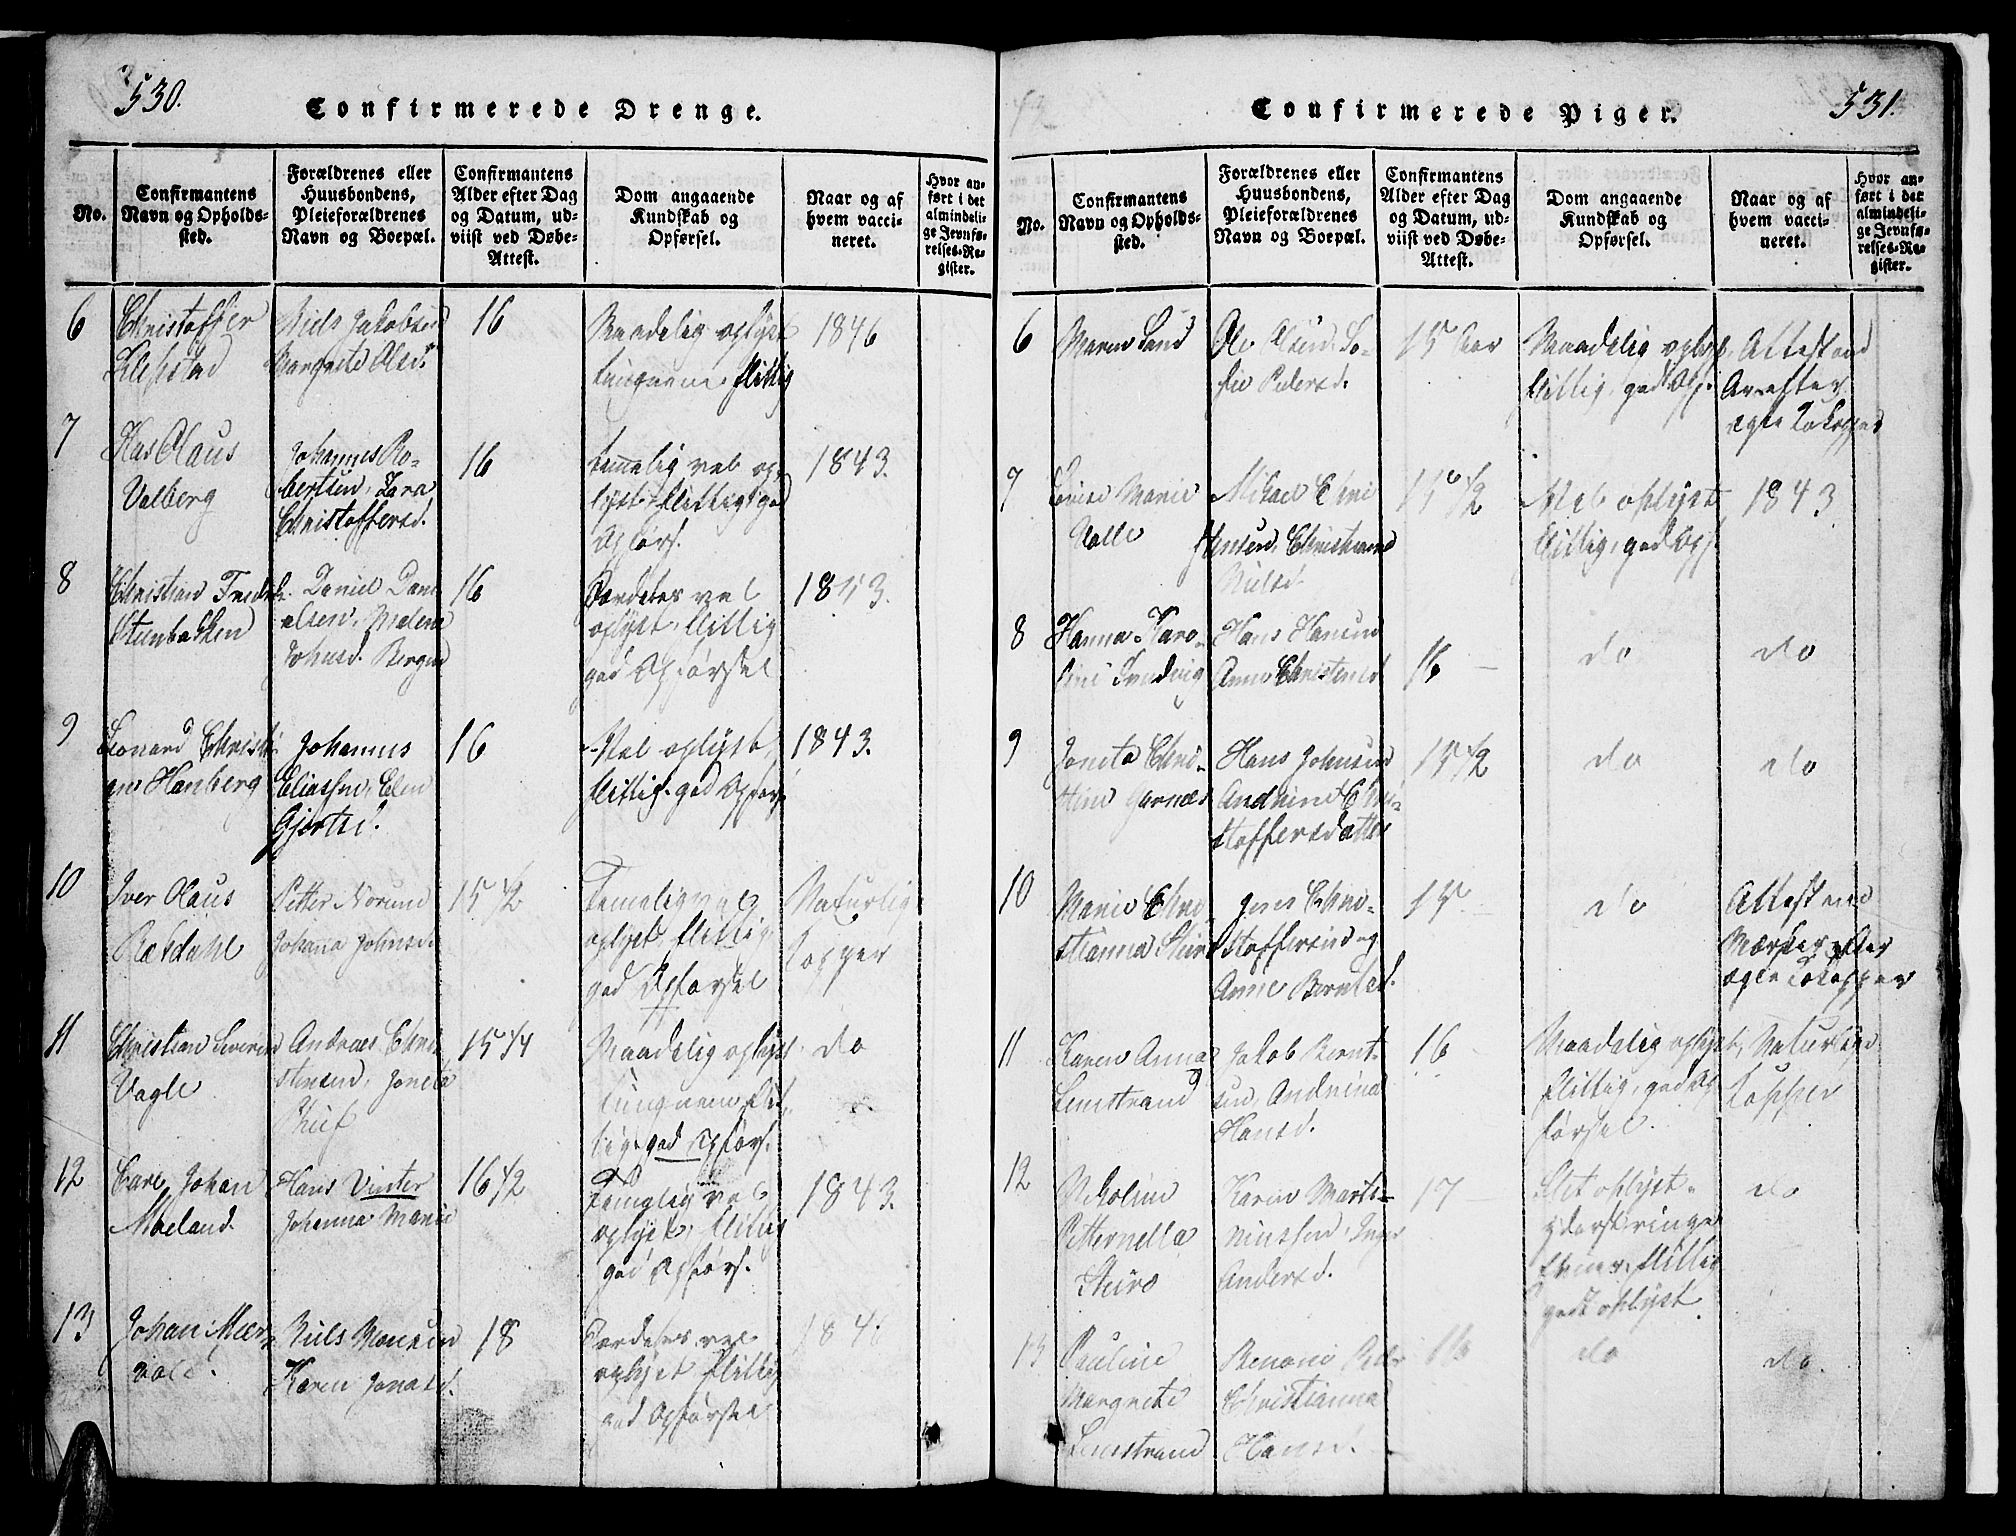 530.
Confirmerede Drenge.
No.
Confirmantens
Navn og Opholds-
sted.
Forældrenes eller
Huusbondens,
Pleieforældrenes
Navn og Boepæl.
Confirmantens
Alder efter Dag
og Datum, ud-
viist ved Døbe-
Attest.
Dom angaaende
Kundskab og
Opførsel.
Naar og af
hvem vacci-
neret.
Hvor an-
ført i det
almindeli-
ge Jevnfø-
relses-Re-
gister.
6
Christoffer
Klepstad
Niels Jakobsen
Margrete Olsd.
16
Maadelig oplyst
flittig
1846
7
Olaus
Valberg
Johannes Ro-
bertsen, Lara
Christoffersd.
16
temelig vel op-
lyst flittig god
Opførs.
1843.
8
Christian Fredrik
Steenbakken
Daniel Dani
elsen, Malena
Johnsd. Bergen
16
Særdeles vel
oplyst, flittig
god Opførsel
1843.
9
Leonard Christi
an Hanberg
Johannes
Eliassen, Elen
Gjertsd.
16
Vel oplyst,
flittig god Opførs
1843.
10
Iver Olaus
Ræsdahl
Petter Norund
Johana Johnsd.
15 1/2
Temelig vel
oplyst, flittig
god Opførsel
Naturlig
Kopper
11
Christian Severin
Vagle
Andreas Chri
stensen, Joneta
15 1/4
Maadelig oplyst
tungnem flit-
tig god Opførs.
do
12
Carl Johan
Moeland
Hans Vinter
Johanna Marie
16 1/2
Temelig vel
oplyst, flittig
god Opførs.
1843.
13
Johan Mær-
vold.
Niels Monsen
Karen Jonasd.
18
Særdeles vel
oplyst flittig
god Opførsel
184
531.
Confirmerede Piger.
No.
Confirmantens
Navn og Opholds-
sted.
Forældrenes eller
Huusbondens,
Pleieforældrenes
Navn og Boepæl.
Confirmantens
Alder efter Dag
og Datum, ud-
viist ved Døbe-
Attest.
Dom angaaende
Kundskab og
Opførsel.
Naar og af
hvem vacci-
neret.
Hvor an-
ført i det
almindeli-
ge Jevnfø-
relses-Re-
gister.
6
Maren Sand
Ole Olsen, So-
fie Pedersd.
15 Aar
Maadelig oplyst,
flittig, god Opf.
Attest om
Ar efter
ægte Kokopper
7
Marie
Valle
Mikael Chri
stensen, Christianna
Nielsd.
15 1/2
Vel oplyst
flittig, god Opf.
1843
8
Hanna Karo-
line
Hans Hansen
Anne Christensd
16
do
do
9
Joneta Chri-
stine Gernæs
Hans Johnsen
Andrine Chri-
stoffersdatter
15 1/2
do
do
10
Marie Chri
stianna Steiro
Jens Chri-
stoffersen og
Anne Berntsd.
15
do
Attest om
Mærker efter
ægte Kokopper
11
Karen Anna
Leenstrand
Jakob Bernt-
sen, Andrina
Hansd.
16
Maadelig oplyst,
flittig, god Op
førsel.
Naturlige
Kopper
12
Nikoline
Petternella
Steiro
Karen Marti-
niussen, Inger
Andersd.
17
Slet oplyst
yderst ringe
Evner, flittig
godt oplyst.
do
13
Pauline
Margrete
Leenstrand
Benoni
Christianna
Hansd.
16
do
do.